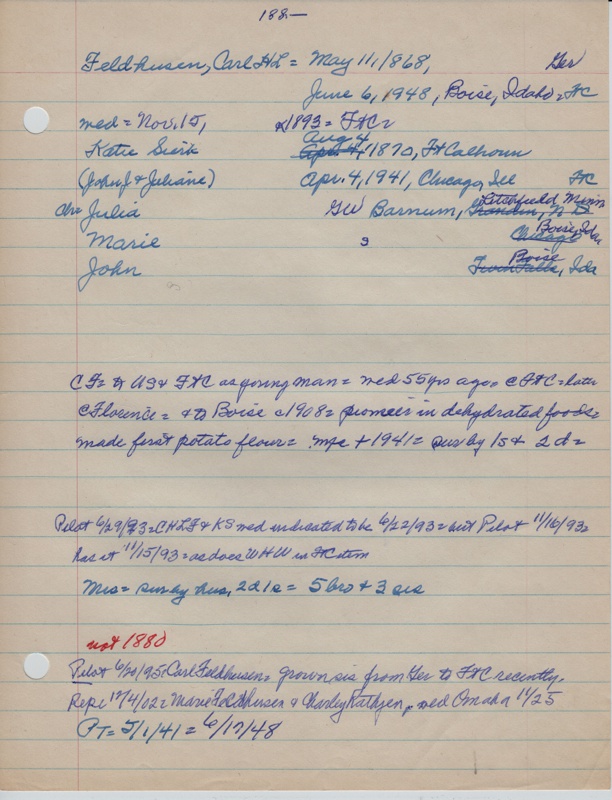 188-
Feldhusen, Carl HL = May 11, 1868, Ger
June 6, 1948, Boise, Idaho = FC
med = Nov. 15, 1893 = FtC =
Aug 4
Katie Sierk Apr. 4, 1870, Ft Calhoun
(John J & Juliane) Apr. 4, 1941, Chicago, Ill FC
Litchfield Minn
ch = Julia GW Barnum, N D
Boise, Ida
Marie Chicago
Boise
John Twin Falls, Ida
CF = to US & FtC as young man = med 55 yrs ago = @ FtC = later
@ Florence = & to Boise c 1908 = pioneer in dehydrated foods =
made first potato flour = Mrs + 1941 = sur by 1s & 2 d =
Pilot 6/29/93 = CHLF & KS med indicated to be 6/22/93 = but Pilot 11/16/93 =
has it 11/15/93 = as does WHW in FC item
Mrs = sur by hus, 2d 1s = 5 bro & 3 sis
not 1880
Pilot 6/20/95 = Carl Feldhusen = grown sis from Ger to FtC recently.
Rep = 12/4/02 = Marie Feldhusen & Charley Rathjen, med Omaha 11/25
PT = 5/1/41 = 6/17/48